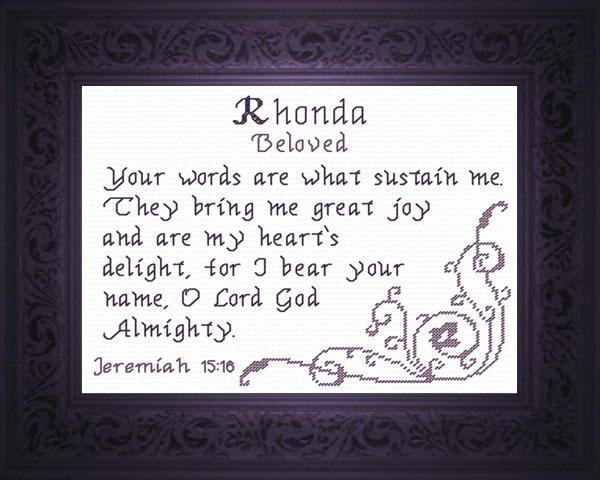 Rhonda
Beloved
Your words are what sustain me.
They bring me great joy
and are my heart's
delight, for I bear your
name, O Lord God
Almighty.
Jeremiah 15:16